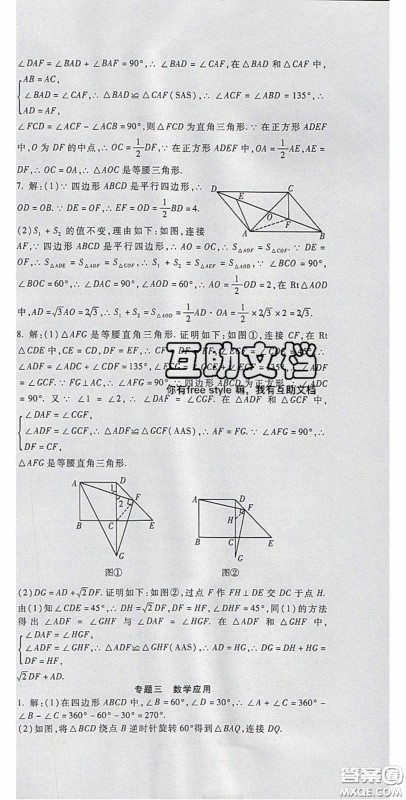 ∠DAF=∠BAD+∠BAF=90°,∴∠BAD=∠CAF,在△BAD 和△CAF 中,
AB=AC,
∠BAD=∠CAF,∴△BAD≌△CAF(SAS),∴∠ACF=∠ABD=135°,∴
AD=AF,
∠FCD=∠ACF-∠ACB=90°,则△FCD 为直角三角形.∵在正方形 ADEF
中,O 为 DF 的中点,∴OC=1/2DF,∵在正方形 ADEF 中,OA=1/2AE,AE=
DF,∴OC=OA,∴△AOC 是等腰三角形.
7. 解:(1)∵四边形 ABCD 是平行四边形,∴
OD=OB.∵DE=OF,∴EF=OD=1/2BD=4.
(2)S₁+S₂ 的值不变,理由如下:如图,连接
AF,∵四边形 ABCD 是平行四边形,∴AO=OC,∴S△AOF=S△COF.∵DE=
OF,∴S△ADE=S△AOF=S△COF,∴S₁+S₂=S△AOD.∵∠BCO=90°,
∠BOC=60°,∴∠DAC=90°,∠AOD=60°,∴AO=2,在 Rt△AOD
中,AD=√3AO=2√3,∴S₁+S₂=S△AOD=1/2AD·OA=1/2×2√3×2=2√3.
8. 解:(1)△AFG 是等腰直角三角形.证明如下:如图①,连接 CF,在 Rt
△CDE 中,CE=CD,DF=EF,∴
∠ADF=∠ADC+∠CDF=135°,
=∠GCF.∵FG⊥AC,
=90°.又∵∠1=∠2,∴∠DAF=∠CGF.在△ADF 和△GCF 中,
∠DAF=∠CGF,
∠ADF=∠GCF,∴△ADF≌△GCF(AAS),∴AF=FG,∵∠AFG=90°,∴
DF=CF,
△AFG 是等腰直角三角形.
图① 图②
(2)DG=AD+√2DF.证明如下:如图②,过点 F 作 FH⊥DE 交 DC 于点 H.
由(1)知∠CDE=45°,∴DH=√2DF,DF=HF,∠DHF=45°,同(1)的方法
得出 ∠ADF=∠GHF 与∠DAF=∠HGF,在△ADF 和△GHF 中,
∠DAF=∠HGF,
∠ADF=∠GHF,∴△ADF≌△GHF(AAS),∴AD=HG,∴DG=DH+HG=
DF=HF,
√2DF+AD.
专题三 数学应用
1. 解:(1)在四边形 ABCD 中,∠B=60°,∠D=30°,∴∠A+∠C=360°-
∠B-∠C=360°-60°-30°=270°.
(2)如图,将△BCD 绕点 B 逆时针旋转 60°得到△BAQ,连接 DQ.
互助文档
你有free style 嘛，我有互助文档
答案圈
MXQE.COM